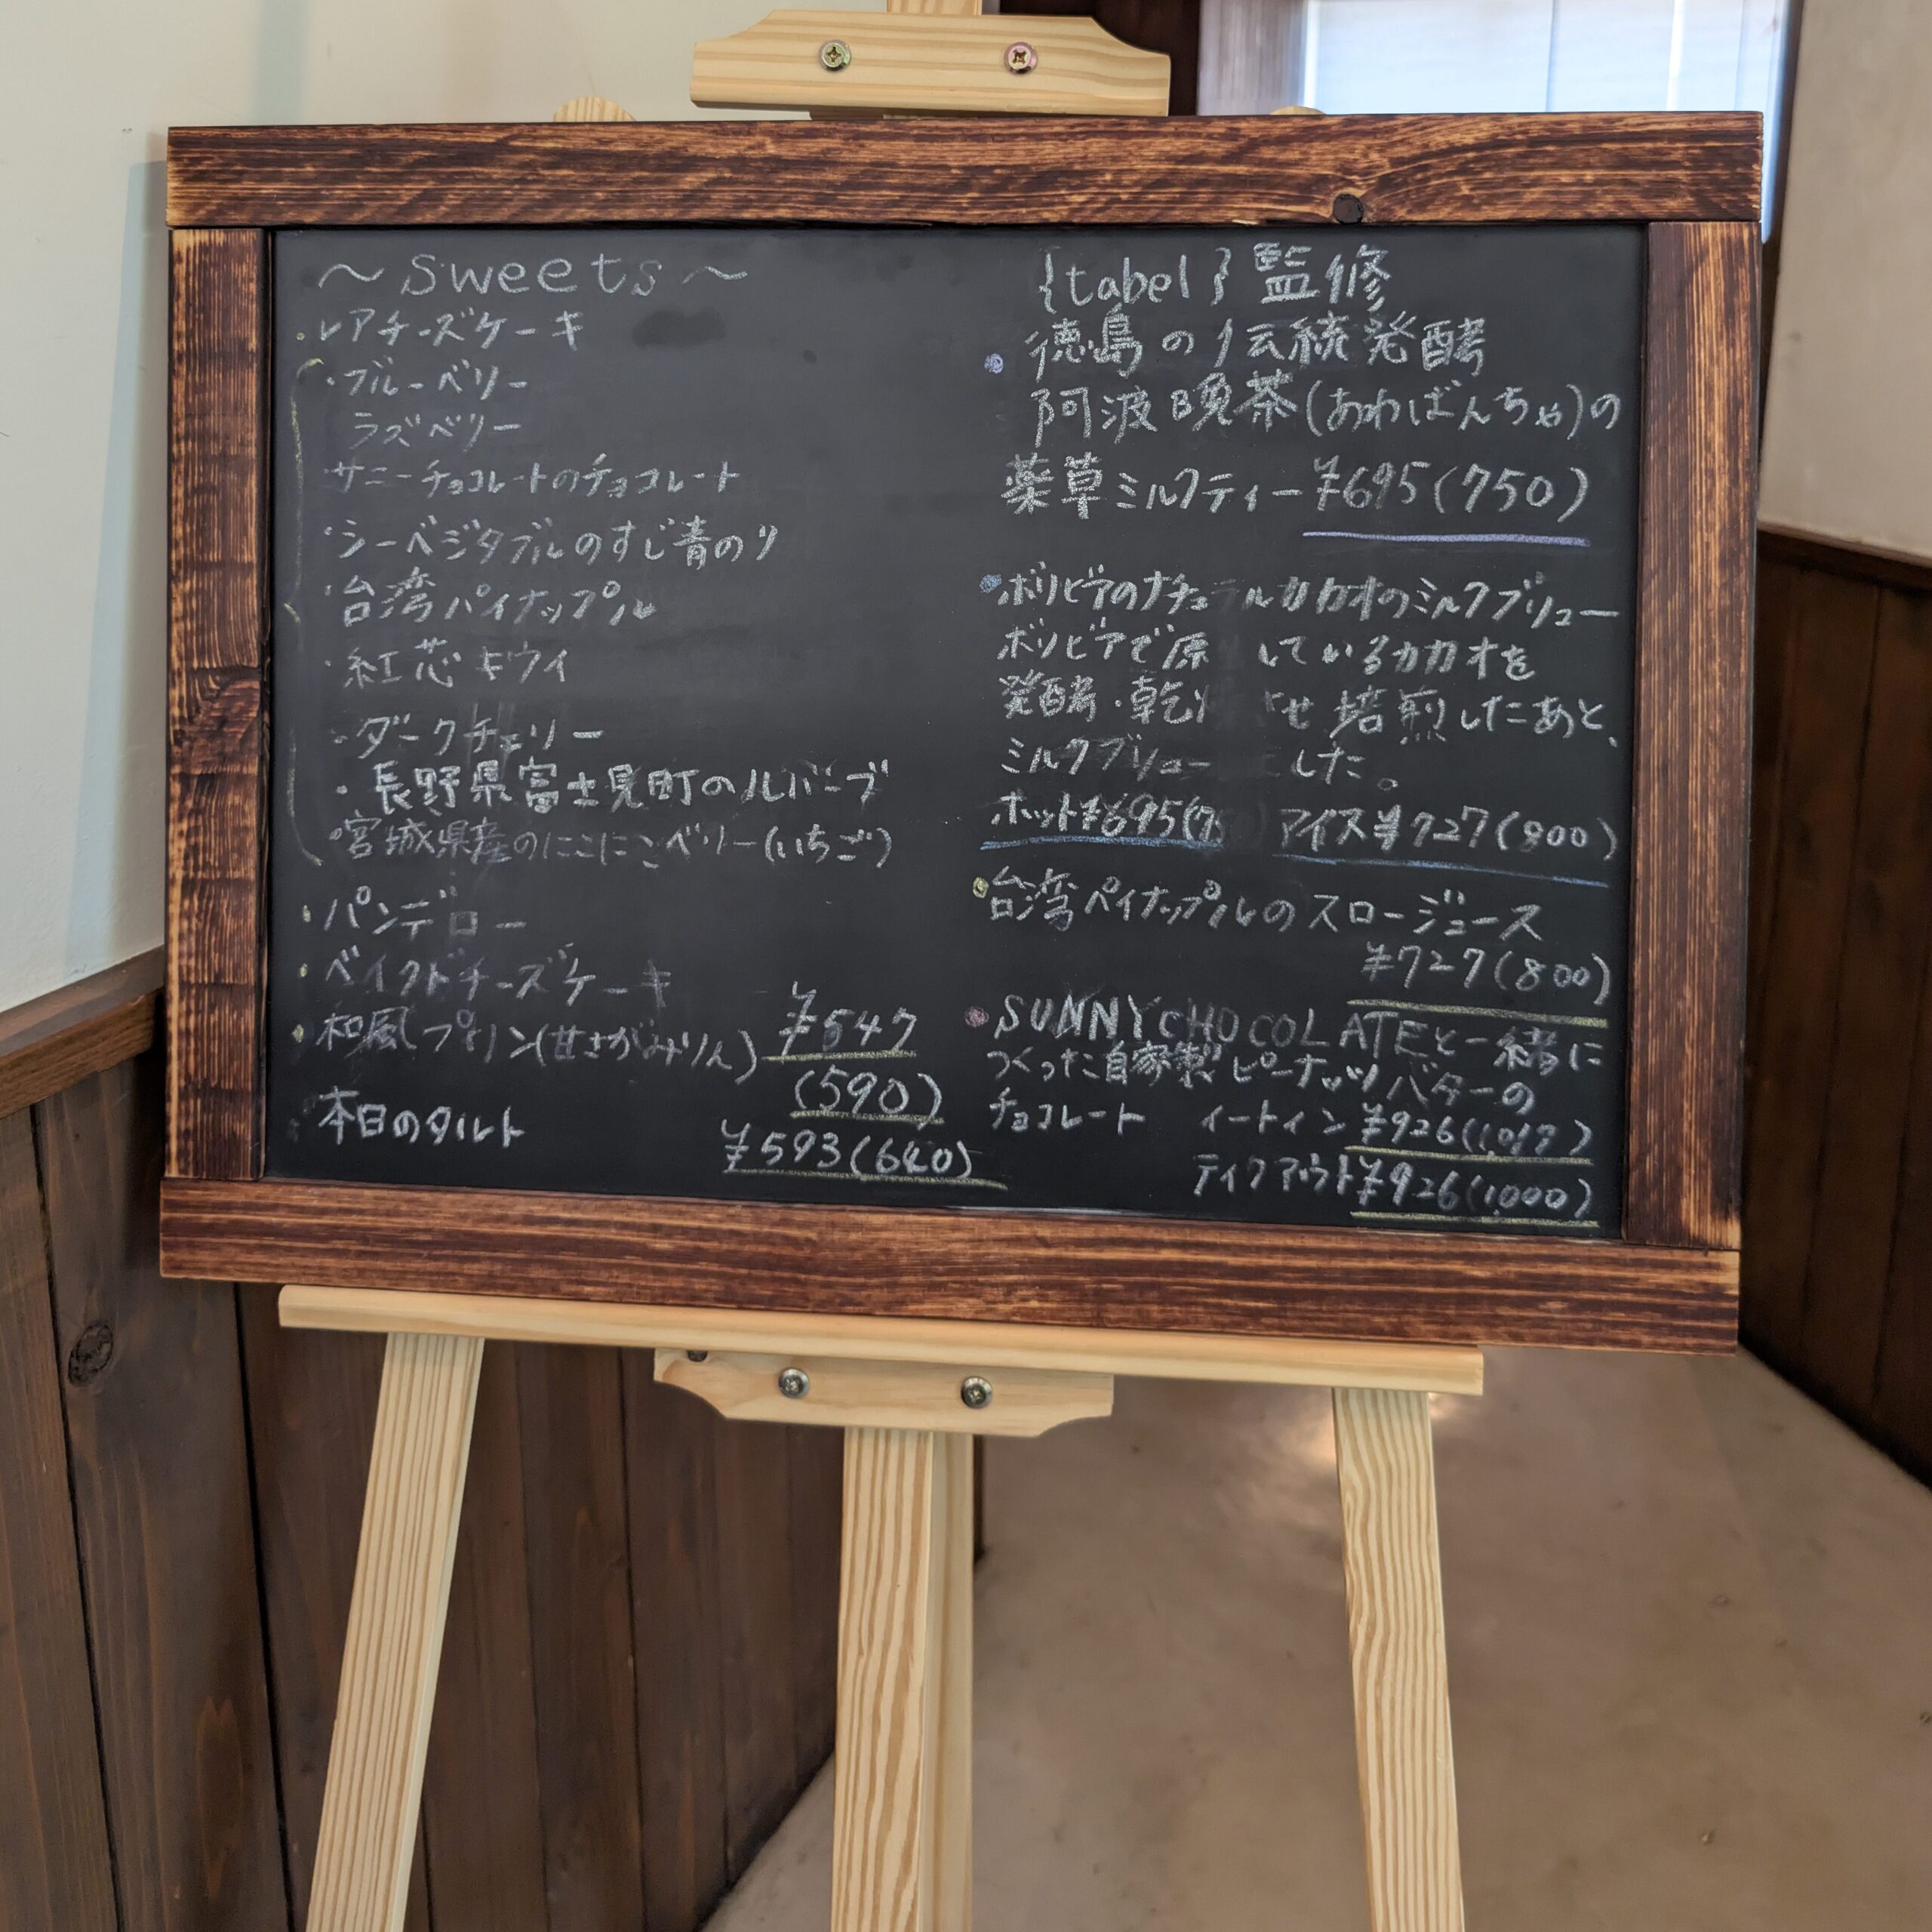 ～sweets～
・レアチーズケーキ
・ブルーベリー
ラズベリー
・サニーチョコレートのチョコレート
・シーベジタブルのすじ青のり
・台湾パイナップル
・紅芯キウイ
・ダークチェリー
・長野県富士見町のルバーブ
・宮城県産のにこにこベリー(いちご)
・パンデロー
・ベイクドチーズケーキ
・和風プリン(甘さがみりん) ¥547
(590)
本日のタルト
¥593(640)
{tabel}監修
・徳島の伝統発酵
阿波晩茶(あわばんちゃ)の
薬草ミルクティー ¥695(750)
・ボリビアのナチュ ルカカオのミルクブリュー
ボリビアで原 しているカカオを
発酵・乾 せ焙煎したあと、
ミルクブリュー した。
ホット¥695( アイス¥727(800)
・台湾パイナップルのスロージュース
¥727(800)
・SUNNYCHOCOLATEと一緒に
つくった自家製ピーナッツバターの
チョコレート イートイン ¥926
テイクアウト¥926(1,000)